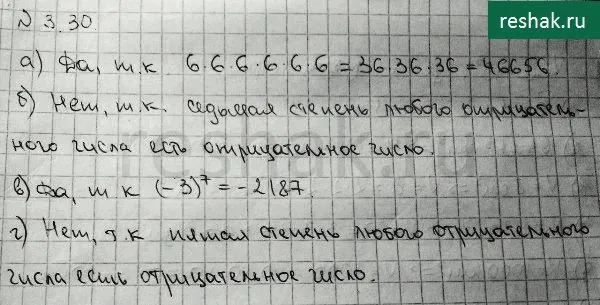 reshak.ru
№ 3.30.
а) Да, т.к. 6·6·6·6·6·6=36·36·36=46656.
б) Нет, т.к. седьмая степень любого отрицатель-
ного числа есть отрицательное число.
в) Да, т.к (-3)⁷=-2187.
г) Нет, т.к пятая степень любого отрицательного
числа есть отрицательное число.
reshak.ru